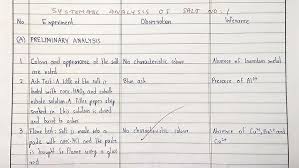 SYSTEMATIC ANALYSIS OF SALT NO: 1
No Experiment Observation Inference
(A) PRELIMINARY ANALYSIS
1 Colour and appearance of the salt are noted. No characteristic colour Absence of
2 Ash Test: A little of the salt is Blue ash Presence of Al³⁺
treated with conc. HNO₃ and cobalt
nitrate solution. A filter paper strip
soaked in this solution is dried
and burnt to ashes.
3 Flame test: Salt is made into a No characteristic colour Absence of Ba²⁺ and
paste with con. HCl and the paste Ca²⁺
is brought to flame using a glass
rod